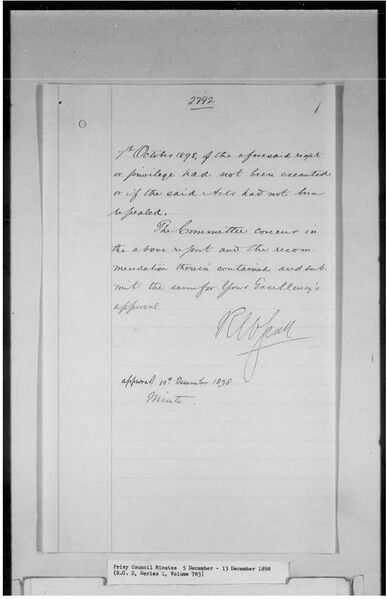 2792
1
7th October 1898, if the aforesaid right
or privilege had not been executed
or if the said Acts had not been
repealed.
The Committee concur in
the above report and the recom-
mendation therein contained and sub
mit the same for Your Excellency's
approval
approved 10th December 1898.
Minto.
Privy Council Minutes 5 December - 13 December 1898
(R.G. 2, Series 1, Volume 783)